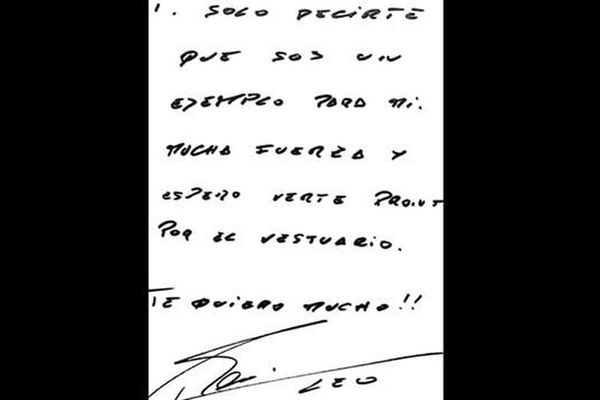 1. SOLO DECIRTE
QUE SOS UN
EJEMPLO PARA MI.
MUCHA FUERZA Y
ESPERO VERTE PRONT
POR EL VESTUARIO.
TE QUIERO MUCHO!!
LEO